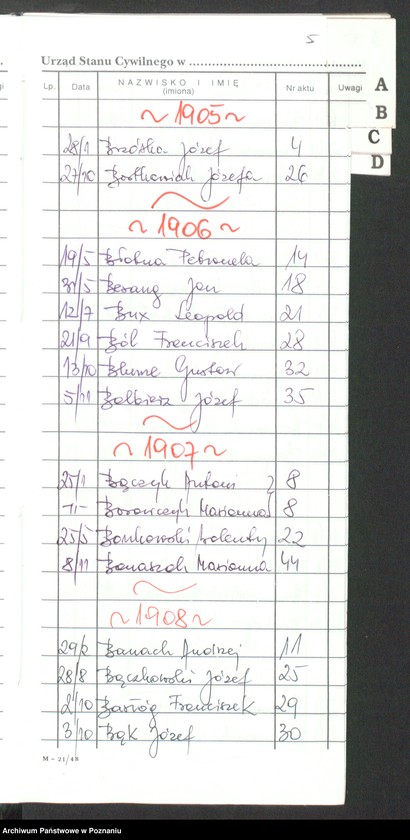 5
Urząd Stanu Cywilnego w
Lp. Data NAZWISKO I IMIĘ (imiona) Nr aktu Uwagi
A
B
C
D
~ 1905 ~
28/1 Brzóska Józef 4
27/10 Bartkowiak Józefa 26
~ 1906 ~
19/5 Petronela 14
31/5 Jan 18
12/7 Bux Leopold 21
21/9 Ból Franciszek 28
13/10 Blume Gustaw 32
5/11 Balbierz Józef 35
~ 1907 ~
25/1 Bączyk Antoni } 8
-"- Marianna 8
25/5 Bankowski Walenty 22
8/11 Banaszak Marianna 44
~ 1908 ~
29/2 Banach Andrzej 11
28/8 Bączkowski Józef 25
2/10 Franciszek 29
3/10 Bąk Józef 30
M - 21/48
Archiwum Państwowe w Poznaniu